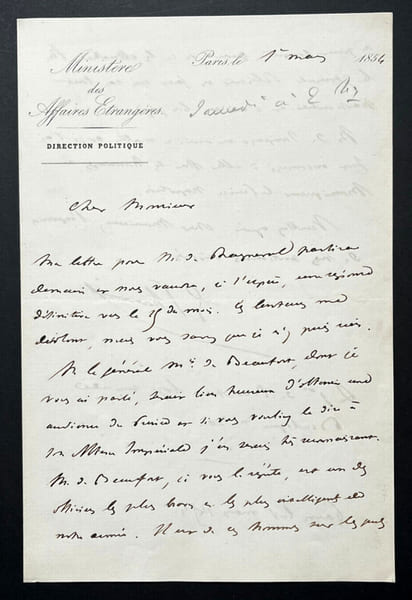 Ministère
des
Affaires Etrangères.
DIRECTION POLITIQUE
Paris, le 1er mars 1854
Samedi à 2 h
Cher Monsieur
Ma lettre pour M. de partira
demain et nous vaudra, je l'espère, une réponse
définitive vers le 15 du mois. Ces lenteurs me
désolent, mais vous savez que je n'y puis rien.
M. le général Mis de Beaufort, dont je
vous ai parlé, serait bien heureux d'obtenir une
audience du Prince et si vous vouliez le dire à
son Altesse Impériale j'en serais très reconnaissant.
M. de Beaufort, je vous le répète, est un des
officiers les plus braves et les plus intelligents de
notre armée. Il est de ces hommes sur lesquels